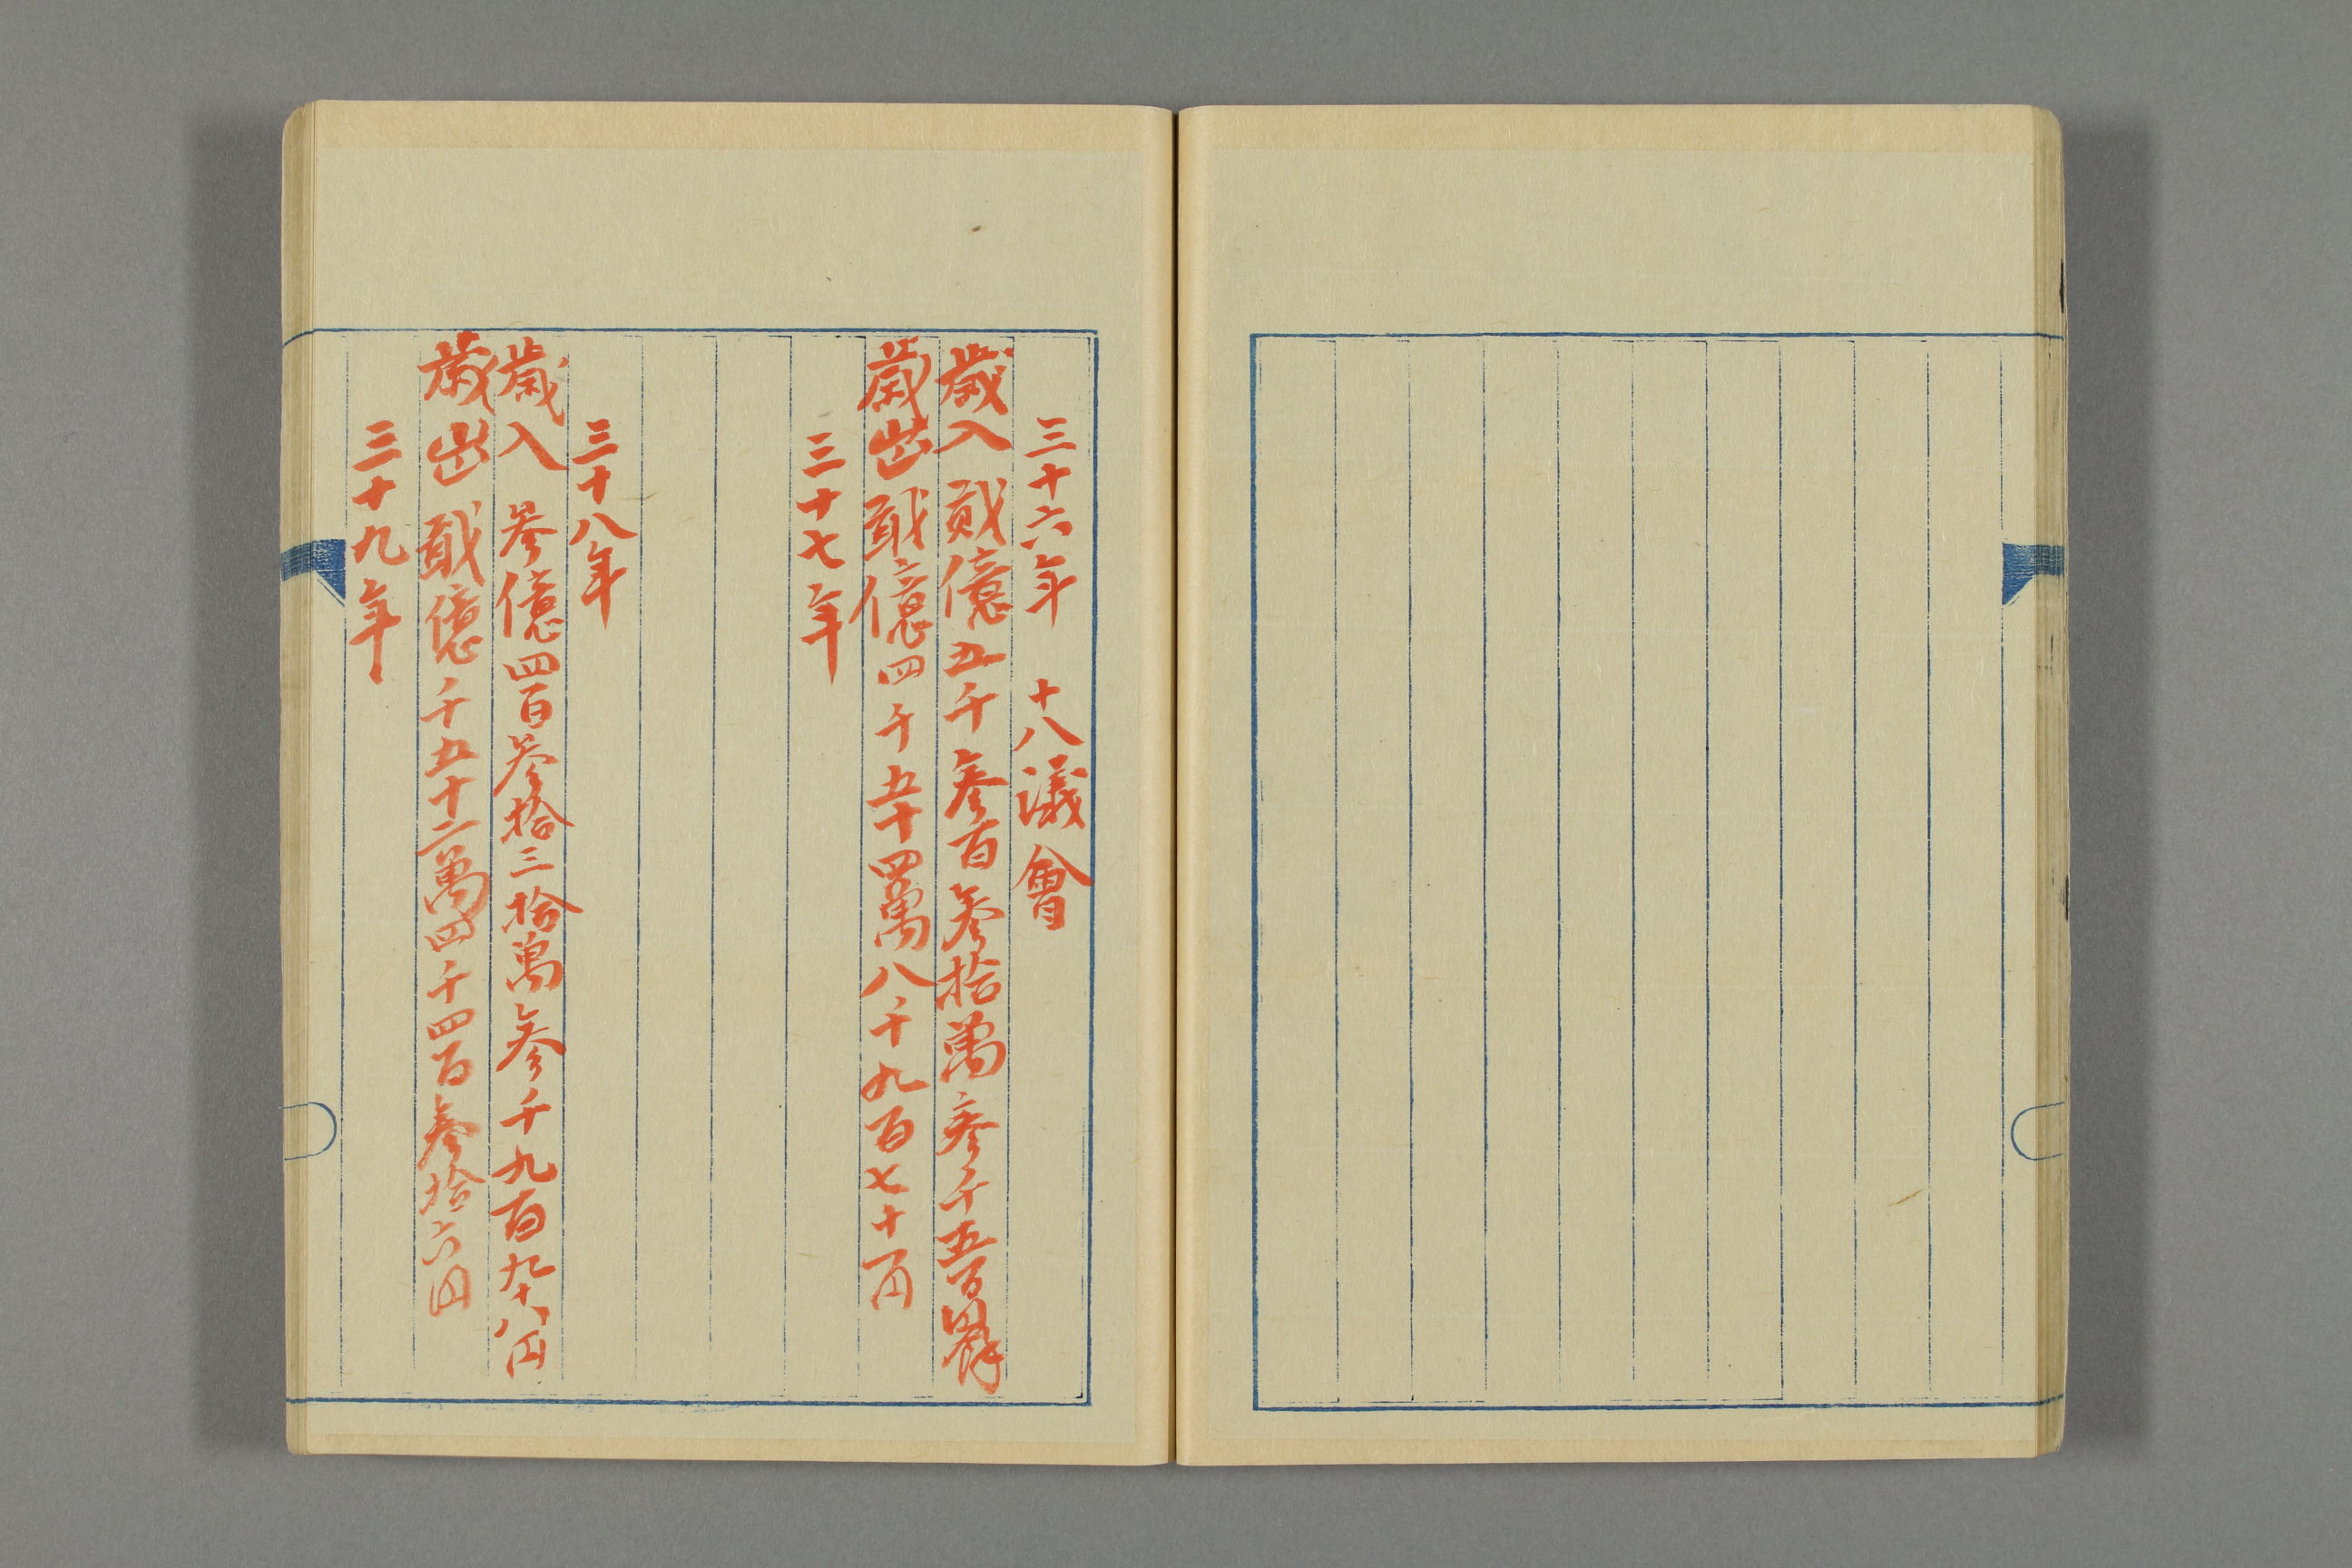 三十六年 十八議會
歳入 貮億五千参百参拾萬参千五百円餘
歳出 貮億四千五十四萬八千九百七十一円
三十七年
三十八年
歳入 参億四百参拾三拾萬参千九百九十八円
歳出 貮億千五十二萬四千四百参拾六円
三十九年